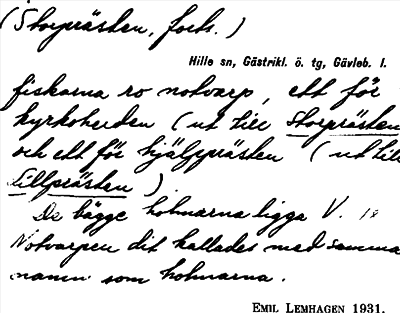 (Storprästen, forts.)
Hille sn, Gästrikl. ö. tg, Gävleb. l.
fiskarna ro notvarp, ett för
kyrkoherden (ut till Storprästen
och ett för hjälpprästen (ut till
Lillprästen).
De bägge holmarna ligga V.
Notvarpen dit kallades med samma
namn som holmarna.
EMIL LEMHAGEN 1931.